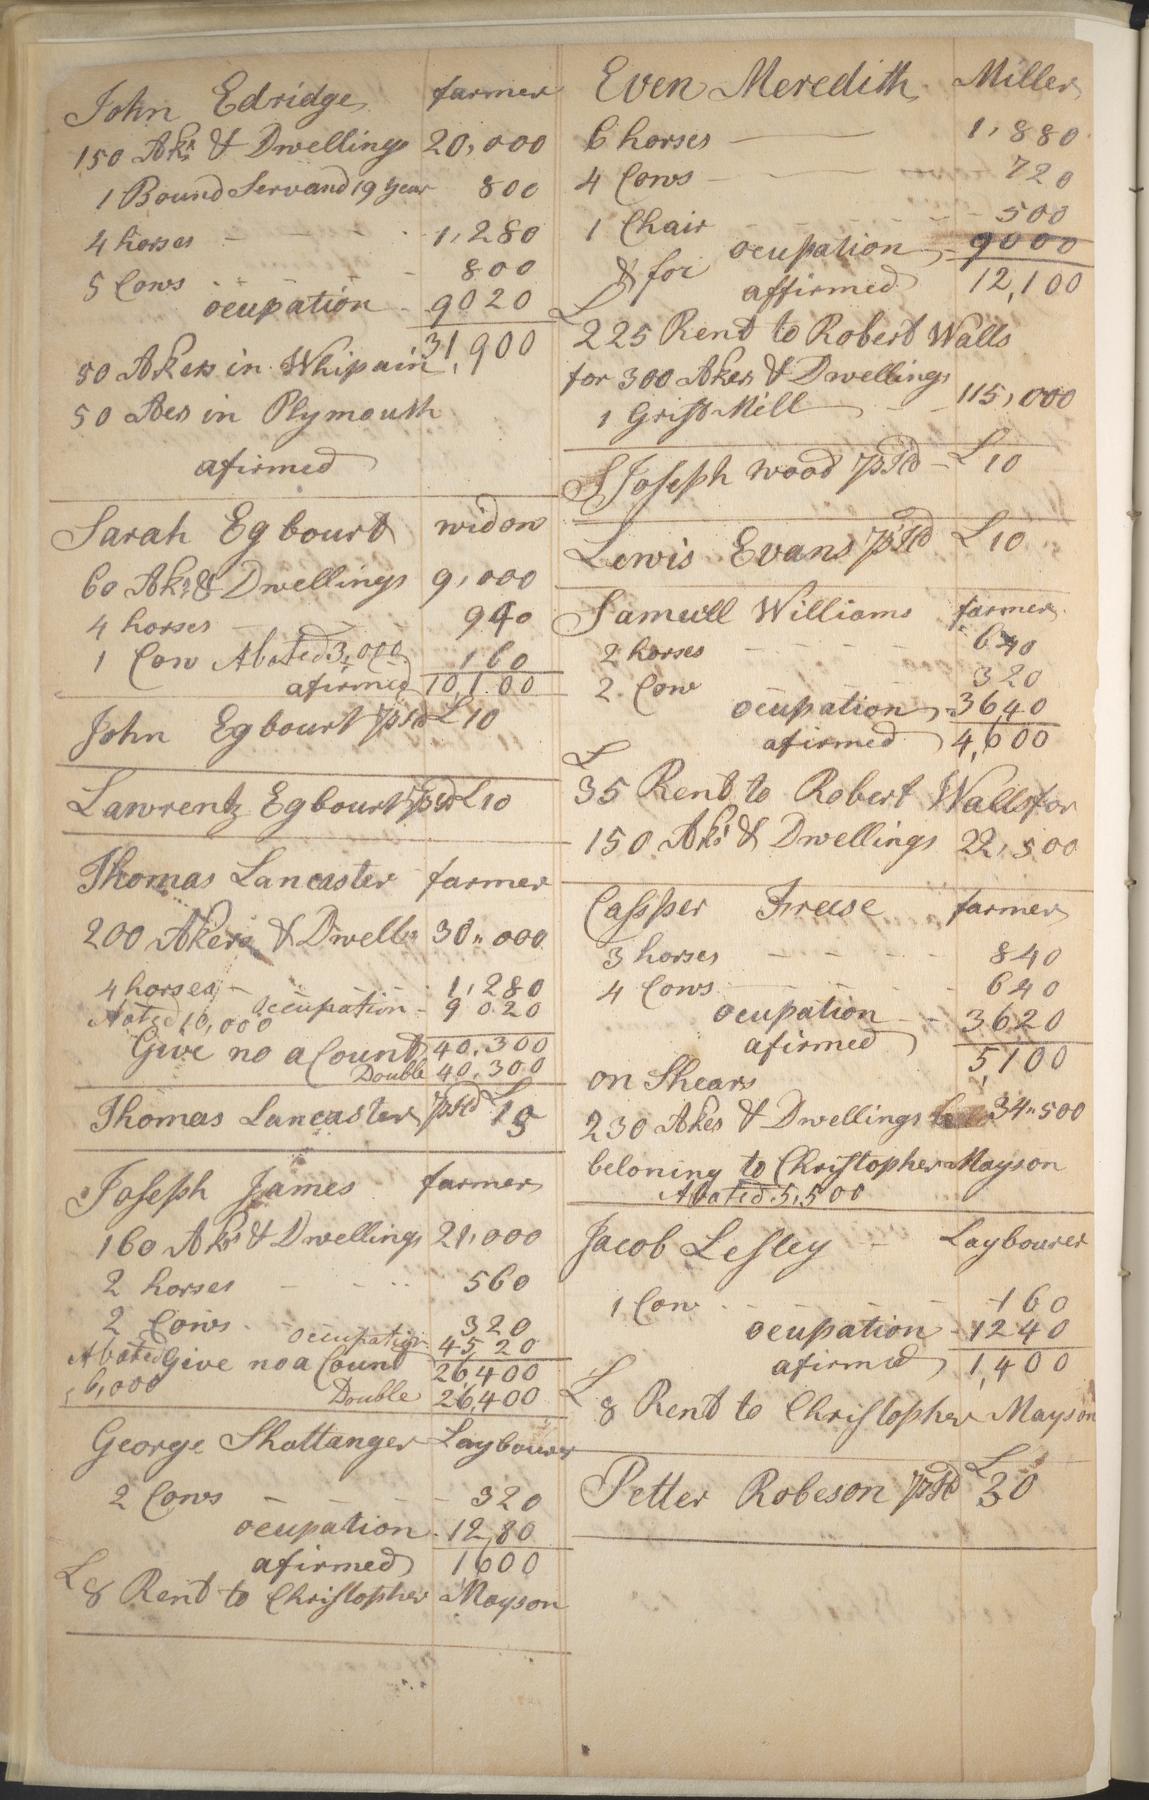 John Edridge farmer
150 Aks & Dwellings 20,000
1 Bound Servand 19 year 800
4 horses 1,280
5 Cows 800
ocupation 9020
31,900
50 Akers in Whipain
50 Aers in Plymouth
afirmed
Sarah Egbourt widow
60 Aks & Dwellings 9,000
4 horses 940
1 Cow Abated 3,000 160
afirmed 10,100
John Egbourt £10
Lawrentz Egbourt £10
Thomas Lancaster farmer
200 Akers & Dwells 30,,000
4 horses 1,280
ocupation 9020
Abated 10,000
Give no aCount 40,300
Double 40,300
Thomas Lancaster £15
Joseph James farmer
160 Aks & Dwellings 21,000
2 horses 560
2 Cows 320
occupation 4520
Abated Give no a Count 26400
6,000 Double 26,400
George Shottanger Laybourer
2 Cows 320
ocupation 1280
afirmed 1600
£8 Rent to Christopher Mayson
Even Meredith Miller
6 horses 1,880
4 Cows 720
1 Chair 500
ocupation 9000
& for affirmed 12,100
£
225 Rent to Robert Walls
for 300 Akes & Dwellings
1 Grist Mill 115,000
Joseph wood £10
Lewis Evans £10
Samuell Williams farmer
2 horses 640
2 Cow 320
ocupation 3640
afirmed 4,600
£
35 Rent to Robert Walls for
150 Aks & Dwellings 22,500
Cassper Freese farmer
3 horses 840
4 Cows 640
ocupation 3620
afirmed 5,100
on Shears
230 Akes & Dwellings 34,,500
beloning to Christopher Mayson
Abated 5,500
Jacob Lesley Laybourer
1 Cow 160
ocupation 1240
afirmed 1,400
£
8 Rent to Christopher Mayson
Petter Robeson £30